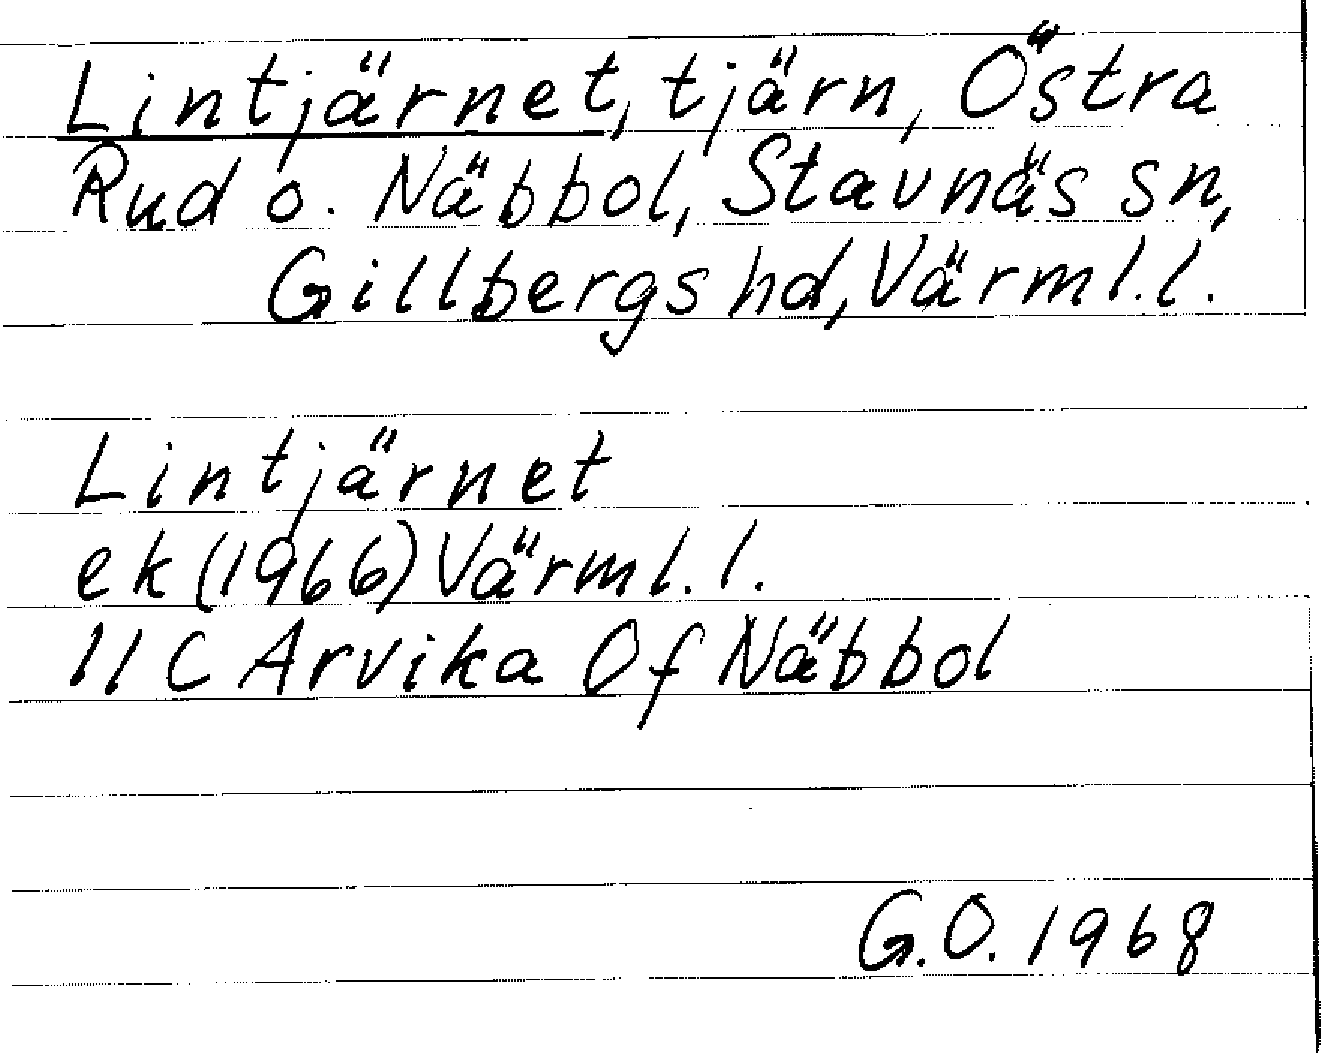 Lintjärnet, tjärn, Östra
Rud o. Näbbol, Stavnäs sn,
Gillbergs hd, Värml.l.
Lintjärnet
ek (1966) Värml.l.
11C Arvika 0f Näbbol
G.O. 1968